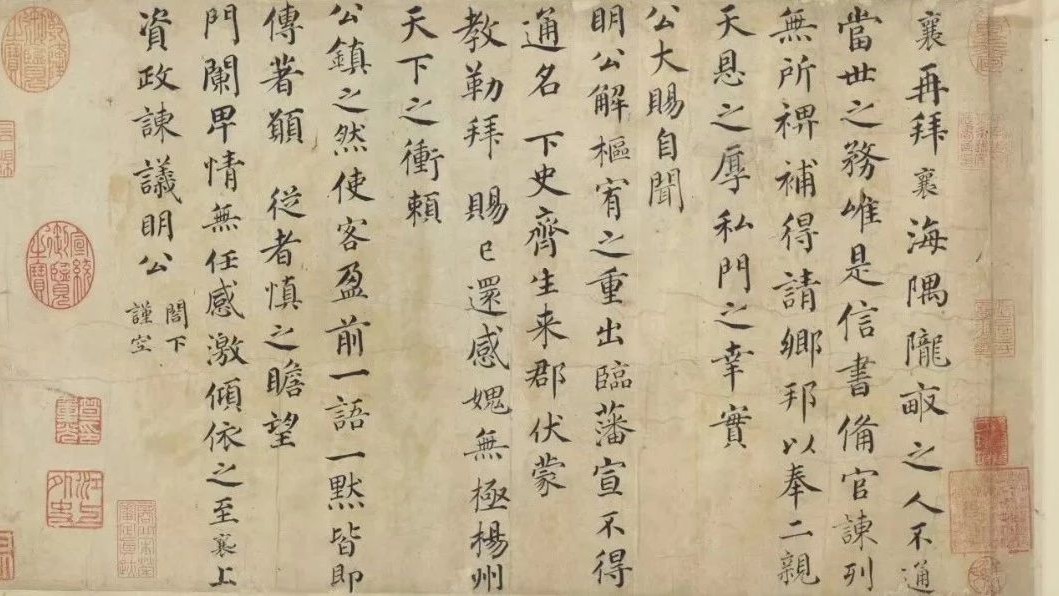 襄再拜襄海隅隴畝之人不通
當世之務唯是信書備官諫列
無所裨補得請鄉邦以奉二親
天恩之厚私門之幸實
公大賜自聞
明公解樞宥之重出臨藩宣不得
通名下史齊生来郡伏蒙
教勒拜賜已還感媿無極楊州
天下之衝賴
公鎮之然使客盈前一語一默皆即
傳著願從者慎之瞻望
門闌卑情無任感激傾依之至襄上
資政諫議明公閤下
謹空